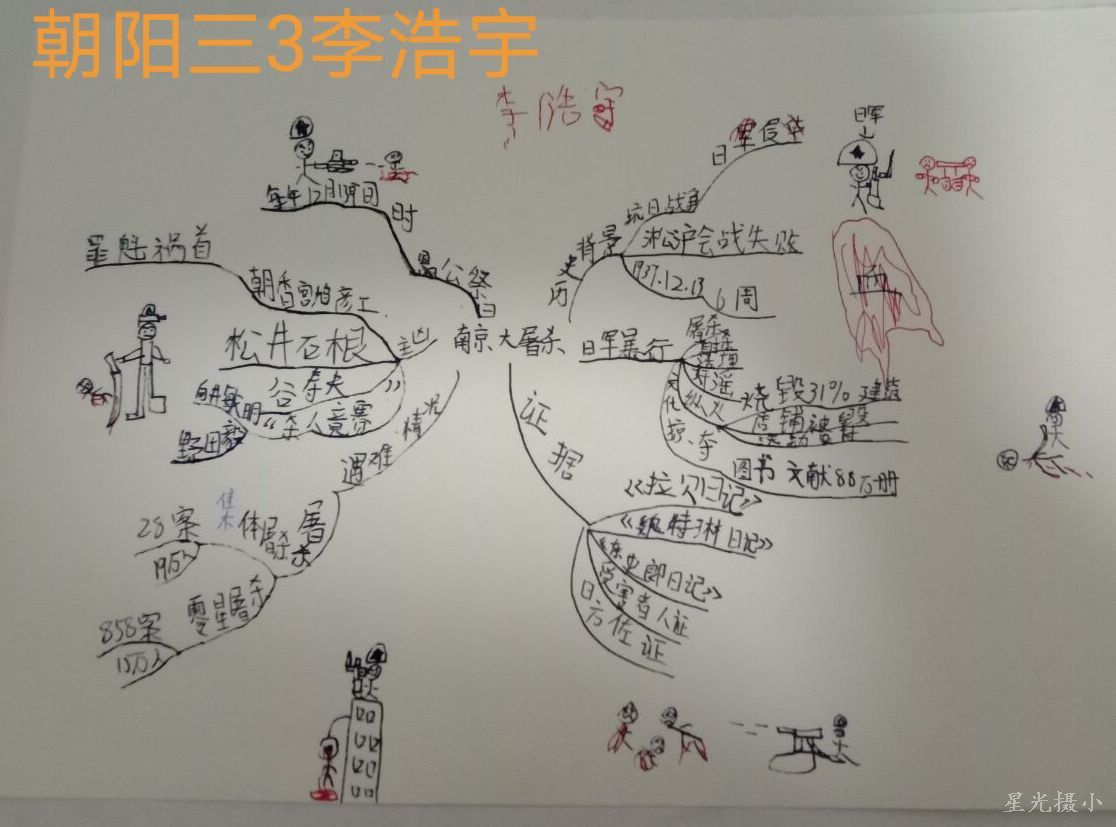 朝阳三3李浩宇
李浩宇
历史背景
抗日战争
日军侵华
淞沪会战失败
1937.12.13
6周
日军
南京大屠杀
日军暴行
屠杀
活埋
奸淫
纵火
烧毁31%建筑
店铺被毁
文化掠夺
图书文献88万册
证据
《拉贝日记》
《魏特琳日记》
《东史郎日记》
受害者人证
日方佐证
遇难情况
屠杀
集体屠杀
28案
19万人
零星屠杀
858案
15万人
主凶
罪魁祸首
朝香宫鸠彦王
松井石根
谷寿夫
“杀人竞赛”
向井敏明
野田毅
公祭日
时
每年12月13日
星光摄小